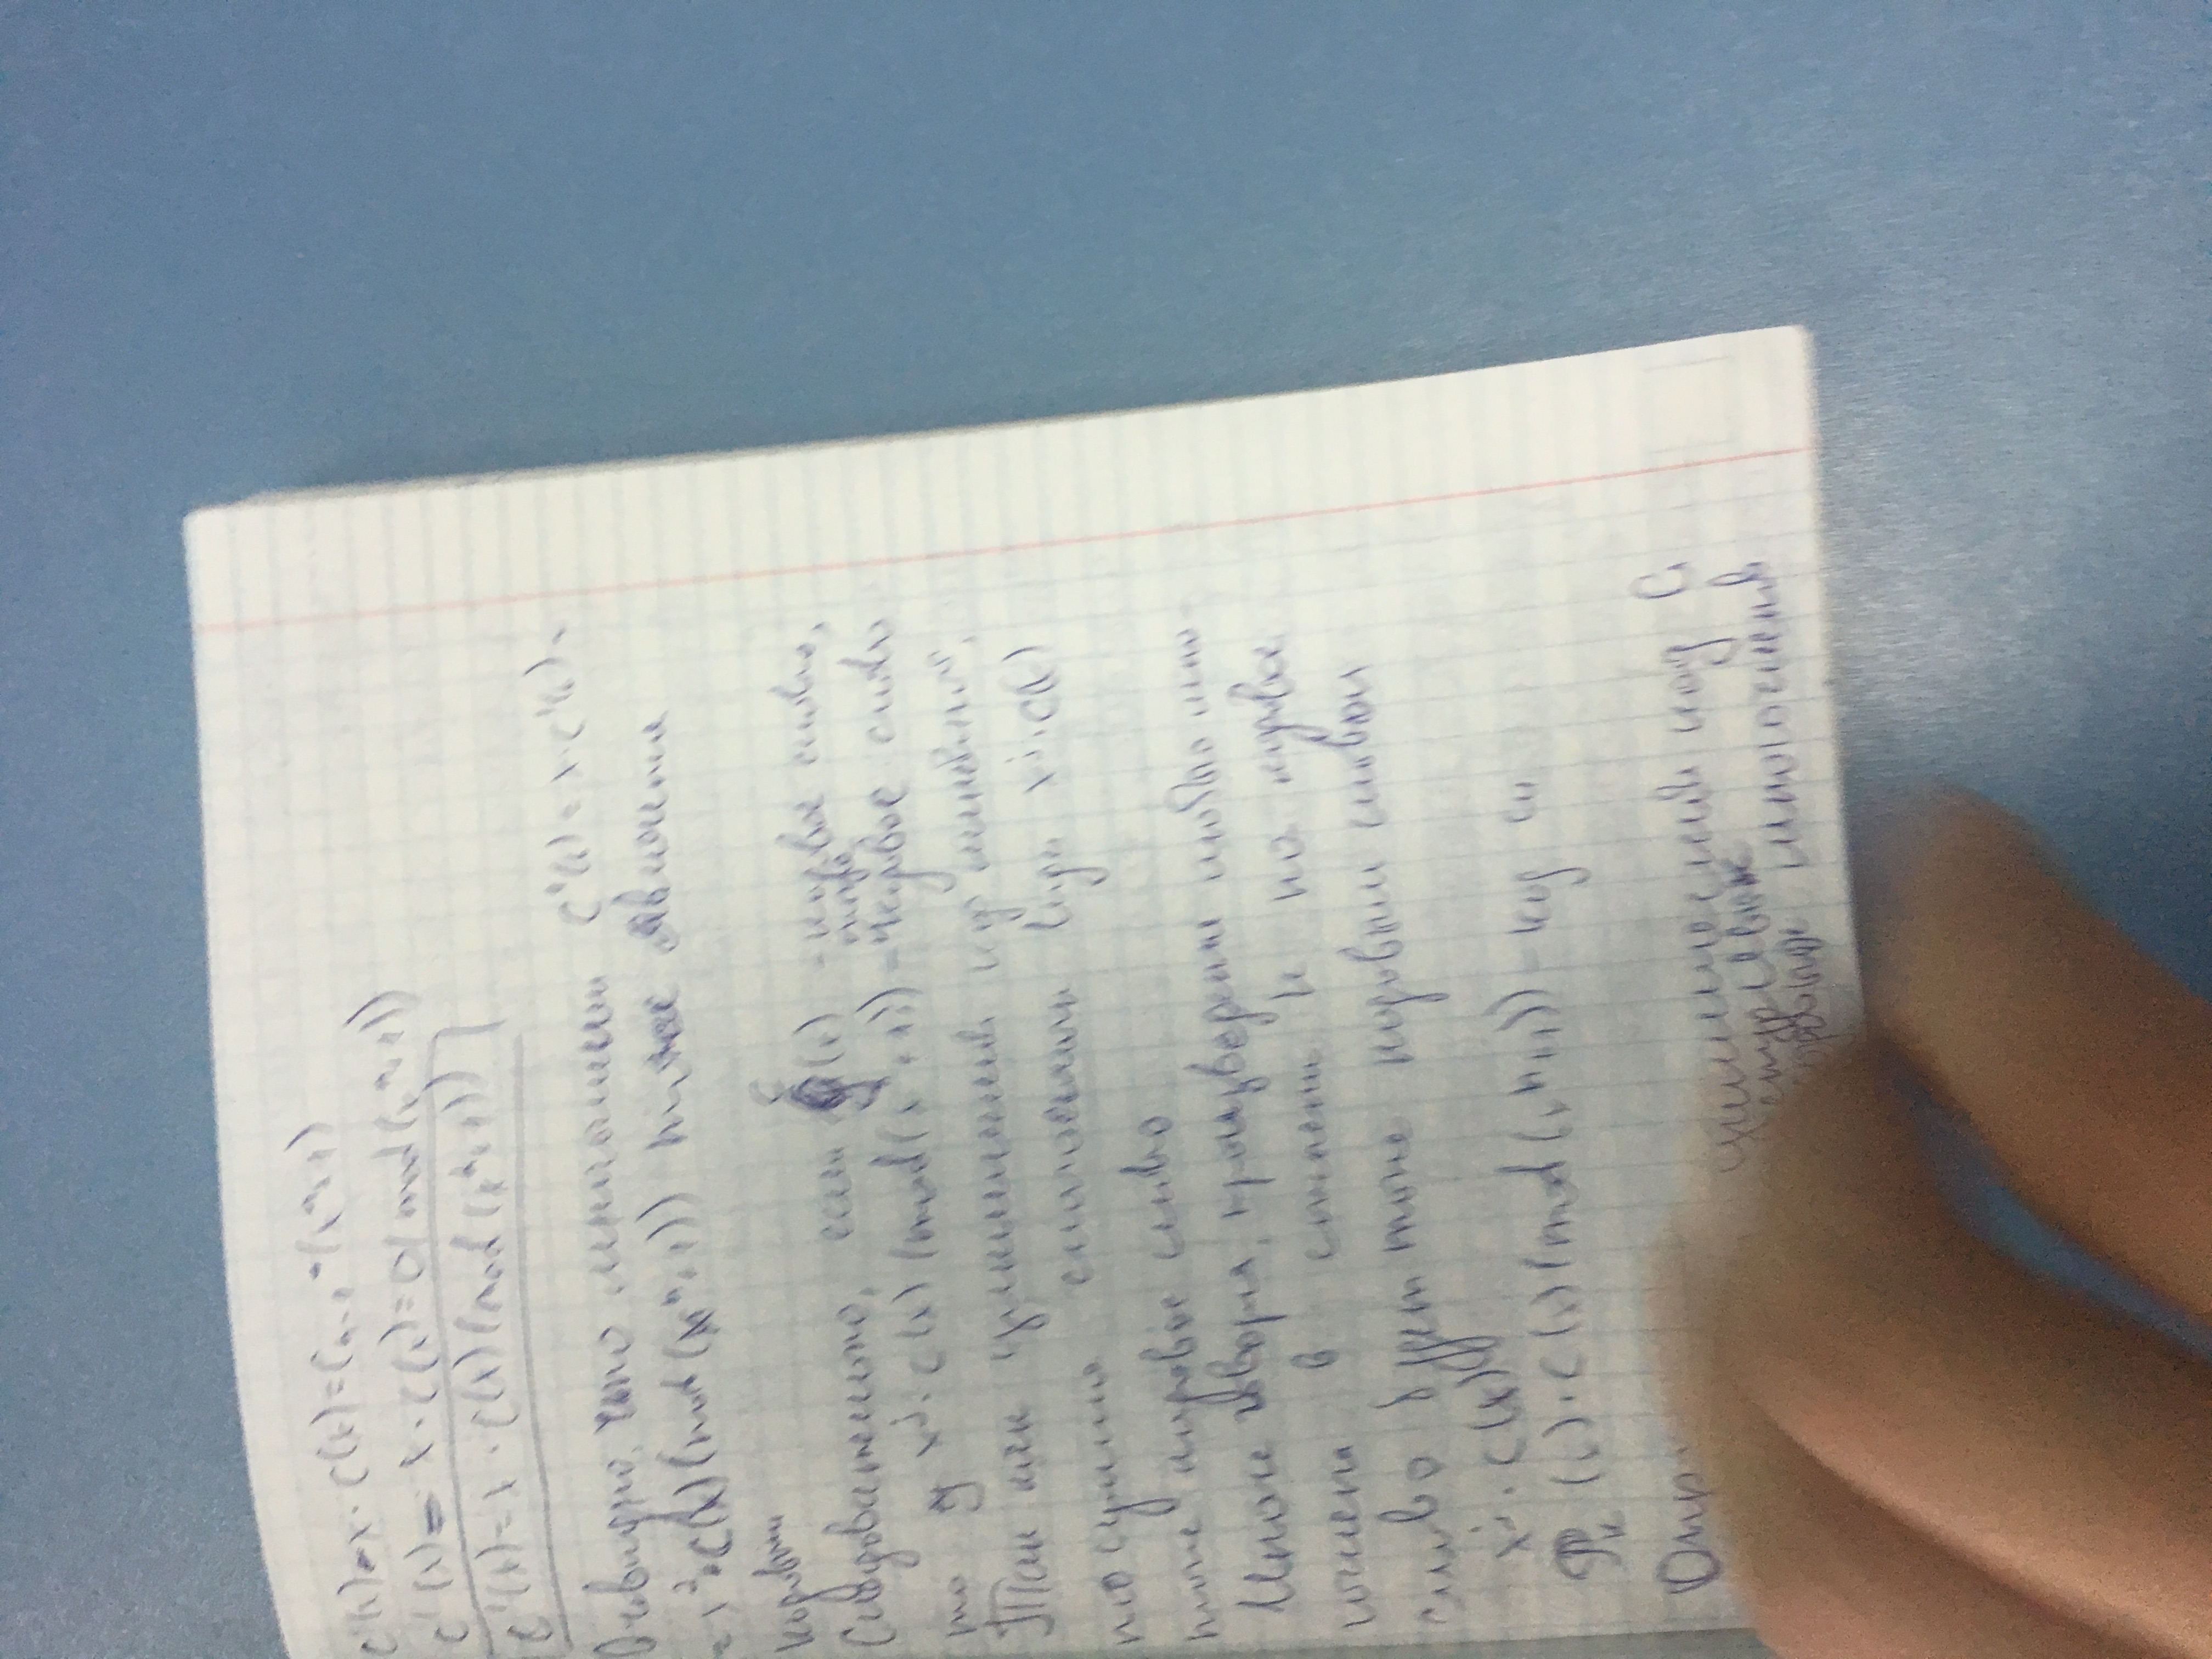 C'(x) = x · C(x) = C n-1 · (x^n + 1)
C'(x) = x · C(x) = 0 (mod (x^n + 1))
C'(x) = x · C(x) (mod (x^n + 1))
Очевидно, что C''(x) = x · C'(x) =
= x^2 · C(x) (mod (x^n + 1)) также является
кодовым
Следовательно, если C(x) - кодовое слово,
то и x^j · C(x) (mod (x^n + 1)) - тоже кодовое слово
Так как циклический код линейный,
то сумма слагаемых вида x^j · C(x)
тоже кодовое слово
Иначе говоря, произведение любого мно-
гочлена в степени k на кодовое
слово будет тоже кодовым словом
x^j · C(x)
P_k (x) · C(x) (mod (x^n + 1)) - код сл
Опр.
циклический код
многочленов